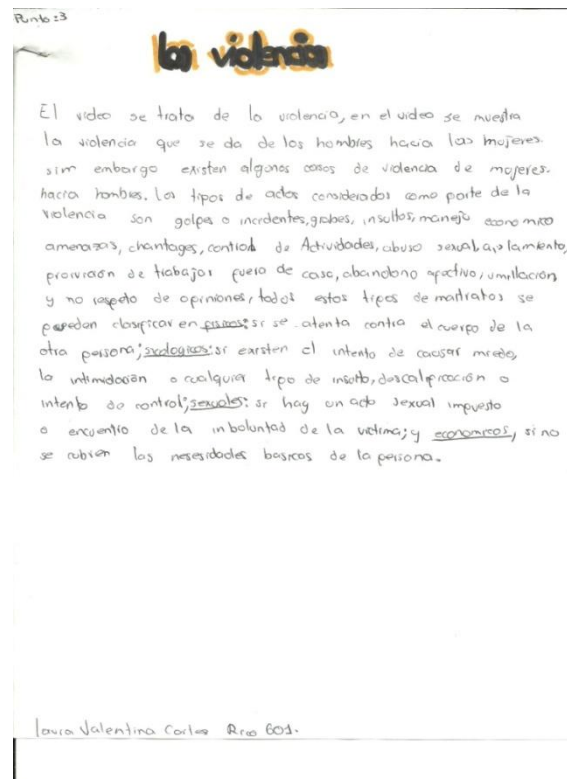 Punto:3
la violencia
El video se trata de la violencia, en el video se muestra
la violencia que se da de los hombres hacia las mujeres.
sim embargo existen algunos casos de violencia de mujeres.
hacia hombres. los tipos de actos considerados como parte de la
violencia son golpes o incidentes, grabes, insultos, manejo economico
amenazas, chantages, control de Actividades, abuso sexual, aislamiento,
proivición de trabajos fuera de casa, abandono afectivo, umillación
y no respeto de opiniones, todos estos tipos de maltratos se
pueden clasificar en fisicos: si se atenta contra el cuerpo de la
otra persona; sicologicos: si existen el intento de causar miedo,
la intimidación o cualquier tipo de insulto, descalificación o
intento de control; sexuales: si hay un acto sexual impuesto
o encuentro de la inboluntad de la victima; y economicos, si no
se cubren las nesesidades basicas de la persona.
laura Valentina Carlos 601.